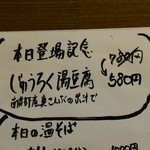 本日登場記念
じゅうろく湯豆腐 780円
580円
函館産真こんぶの出汁で
本日の温そば